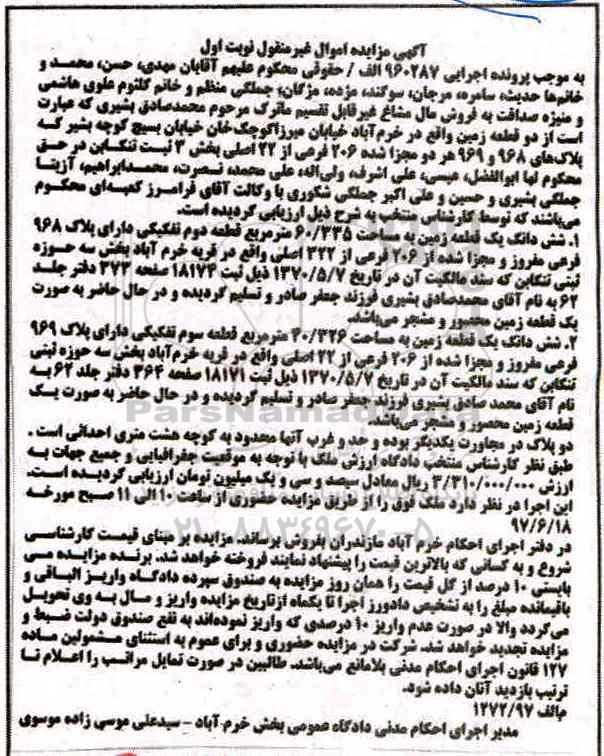 آگهی مزایده اموال غیرمنقول نوبت اول
به موجب پرونده اجرایی ۹۶۰۲۸۷ الف / حقوقی محکوم علیهم آقایان مهدی، حسن، محمد و
خانم‌ها حدیث، سامره، مرجان، سوگند، مژده، مژگان، جملگی منظم و خانم کلثوم علوی هاشمی
و منیژه صداقت به فروش مال مشاع غیرقابل تقسیم ماترک مرحوم محمدصادق بشیری که عبارت
است از دو قطعه زمین واقع در خرم‌آباد خیابان میرزاکوچک‌خان خیابان بسیج کوچه بشیر که
پلاک‌های ۹۶۸ و ۹۶۹ هر دو مجزا شده ۲۰۶ فرعی از ۲۲ اصلی بخش ۳ ثبت تنکابن در حق
محکوم لها ابوالفضل، عیسی، علی اشرف، ولی‌اله، علی محمد، نصرت، محمدابراهیم، آزیتا
جملگی بشیری و حسین و علی اکبر جملگی شکوری با وکالت آقای فرامرز کمبه‌ای محکوم
می‌باشند که توسط کارشناس منتخب به شرح ذیل ارزیابی گردیده است.
۱. شش دانگ یک قطعه زمین به مساحت ۶۰/۳۳۵ مترمربع قطعه دوم تفکیکی دارای پلاک ۹۶۸
فرعی مفروز و مجزا شده از ۲۰۶ فرعی از ۳۲۲ اصلی واقع در قریه خرم آباد بخش سه حوزه
ثبتی تنکابن که سند مالکیت آن در تاریخ ۱۳۷۰/۵/۷ ذیل ثبت ۱۸۱۷۴ صفحه ۳۷۳ دفتر جلد
۶۲ به نام آقای محمدصادق بشیری فرزند جعفر صادر و تسلیم گردیده و در حال حاضر به صورت
یک قطعه زمین محصور و مشجر می‌باشد.
۲. شش دانگ یک قطعه زمین به مساحت ۴۰/۳۲۶ مترمربع قطعه سوم تفکیکی دارای پلاک ۹۶۹
فرعی مفروز و مجزا شده از ۲۰۶ فرعی از ۲۲ اصلی واقع در قریه خرم‌آباد بخش سه حوزه ثبتی
تنکابن که سند مالکیت آن در تاریخ ۱۳۷۰/۵/۷ ذیل ثبت ۱۸۱۷۱ صفحه ۳۶۴ دفتر جلد ۶۲ به
نام آقای محمد صادق بشیری فرزند جعفر صادر و تسلیم گردیده و در حال حاضر به صورت یک
قطعه زمین محصور و مشجر می‌باشد.
دو پلاک در مجاورت یکدیگر بوده و حد و غرب آنها محدود به کوچه هشت متری احداثی است.
طبق نظر کارشناس منتخب دادگاه ارزش ملک با توجه به موقعیت جغرافیایی و جمیع جهات به
ارزش ۳/۳۱۰/۰۰۰/۰۰۰ ریال معادل سیصد و سی و یک میلیون تومان ارزیابی گردیده است.
این اجرا در نظر دارد ملک فوق را از طریق مزایده حضوری از ساعت ۱۰ الی ۱۱ صبح مورخه
۹۷/۶/۱۸
در دفتر اجرای احکام خرم آباد مازندران بفروش برساند. مزایده بر مبنای قیمت کارشناسی
شروع و به کسانی که بالاترین قیمت را پیشنهاد نمایند فروخته خواهد شد. برنده مزایده می
بایستی ۱۰ درصد از کل قیمت را همان روز مزایده به صندوق سپرده دادگاه واریز الباقی و
باقیمانده مبلغ را به تشخیص دادورز اجرا تا یکماه ازتاریخ مزایده واریز و مال به وی تحویل
می‌گردد والا در صورت عدم واریز ۱۰ درصدی که واریز نموده‌اند به نفع صندوق دولت ضبط و
مزایده تجدید خواهد شد. شرکت در مزایده حضوری و برای عموم به استثنای مشمولین ماده
۱۲۷ قانون اجرای احکام مدنی بلامانع می‌باشد. طالبین در صورت تمایل مراتب را اعلام تا
ترتیب بازدید آنان داده شود.
م‌الف ۱۲۷۲/۹۷
مدیر اجرای احکام مدنی دادگاه عمومی بخش خرم آباد - سیدعلی موسی زاده موسوی
ParsNamadData
۰۲۱-۸۸۳۴۹۶۷۰-۵